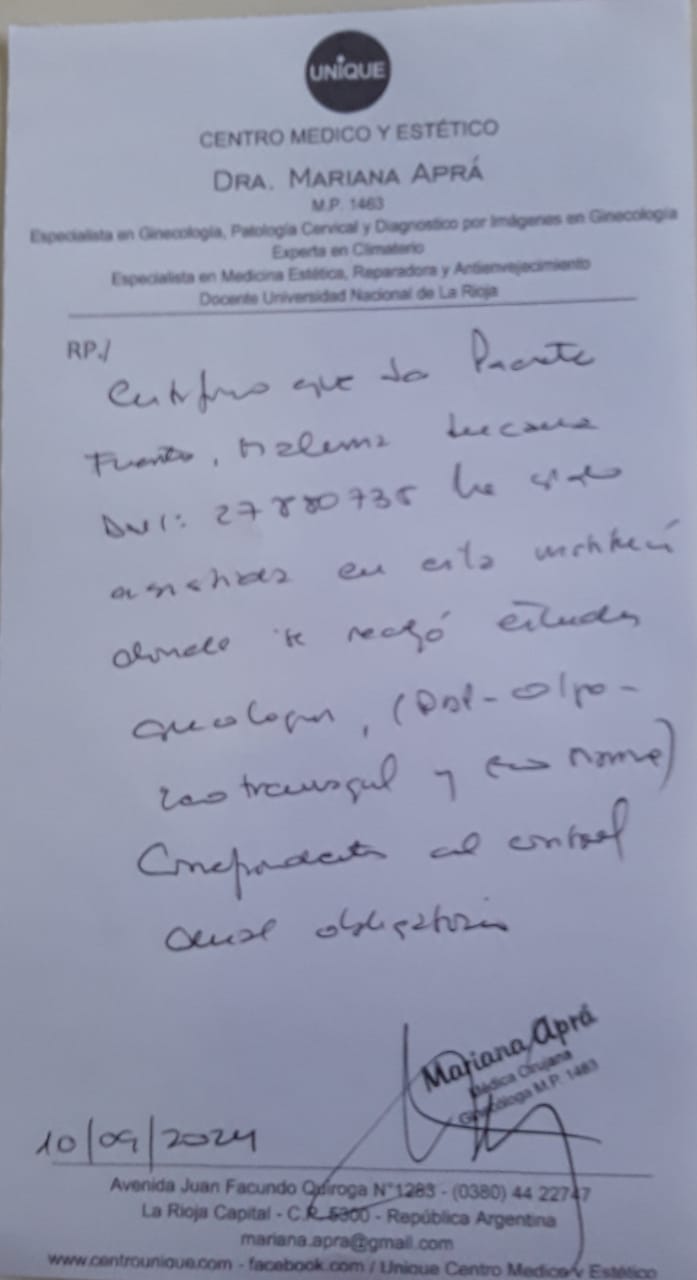 UNIQUE
CENTRO MEDICO Y ESTÉTICO
DRA. MARIANA APRÁ
M.P. 1463
Especialista en Ginecología, Patología Cervical y Diagnostico por Imágenes en Ginecología
Experta en Climaterio
Especialista en Medicina Estética, Reparadora y Antienvejecimiento
Docente Universidad Nacional de La Rioja
RP./
Certifico que la Paciente
DNI: 27880735 ha sido
asistida en esta
donde se realizó estudios
y
al control
anual obligatorio
Mariana Aprá
Médica Cirujana
Ginecóloga M.P. 1463
10/09/2024
Avenida Juan Facundo Quiroga N°1283 - (0380) 44 22747
La Rioja Capital - C.P. 5300 - República Argentina
mariana.apra@gmail.com
www.centrounique.com - facebook.com / Unique Centro Medico y Estético